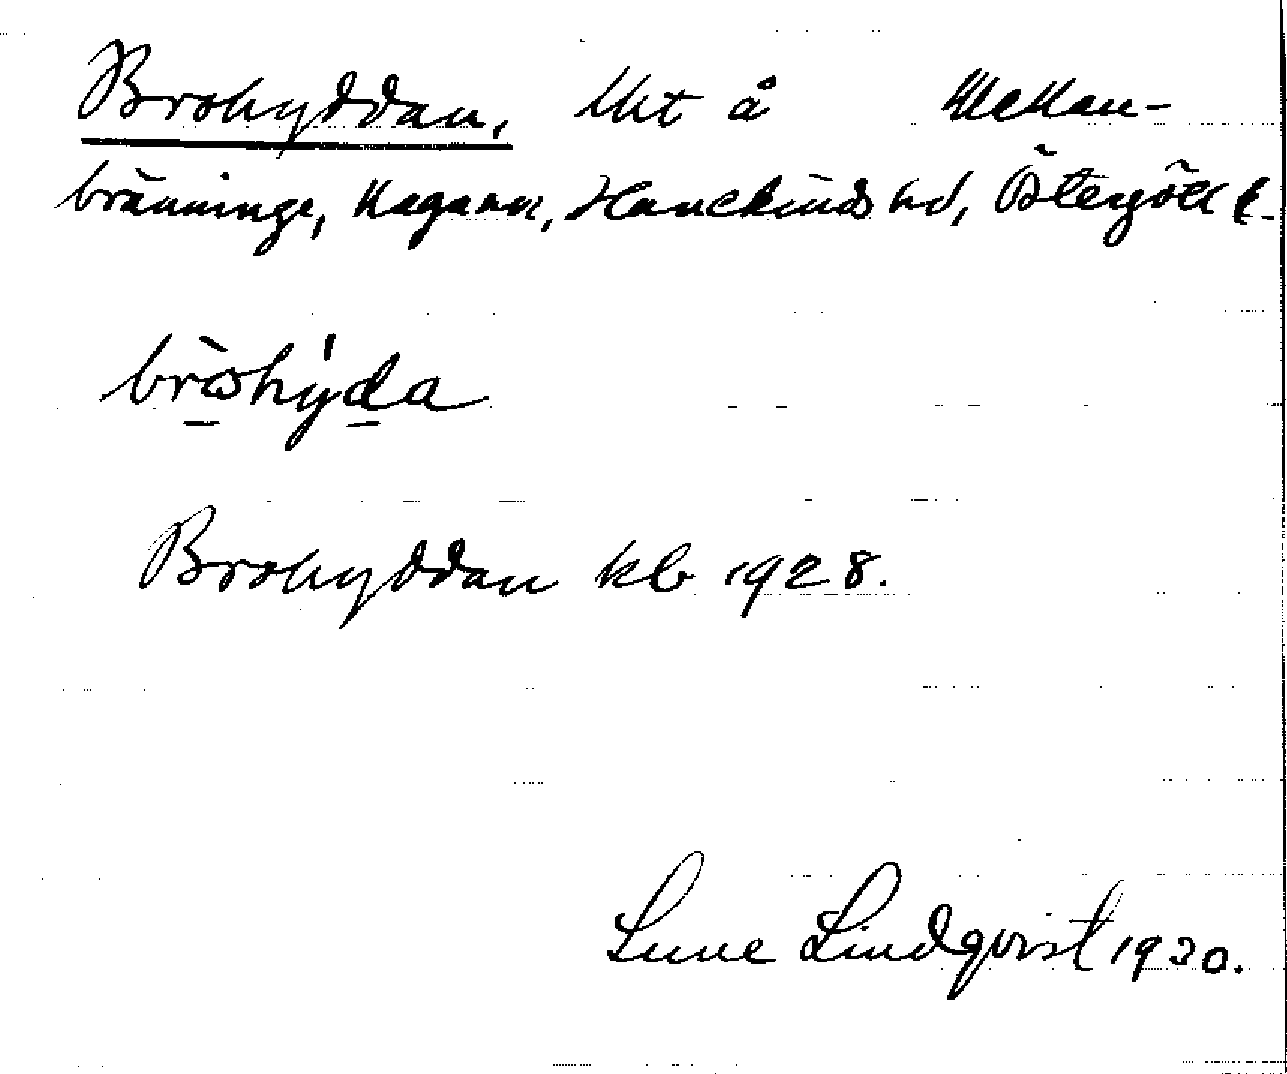 Brohyddan, lht å Mellan-
bränninge, Hagarne, Hanekinds hd, Östergötl l.
bròhy̍da
Brohyddan kb 1928.
Sune Lindqvist 1930.